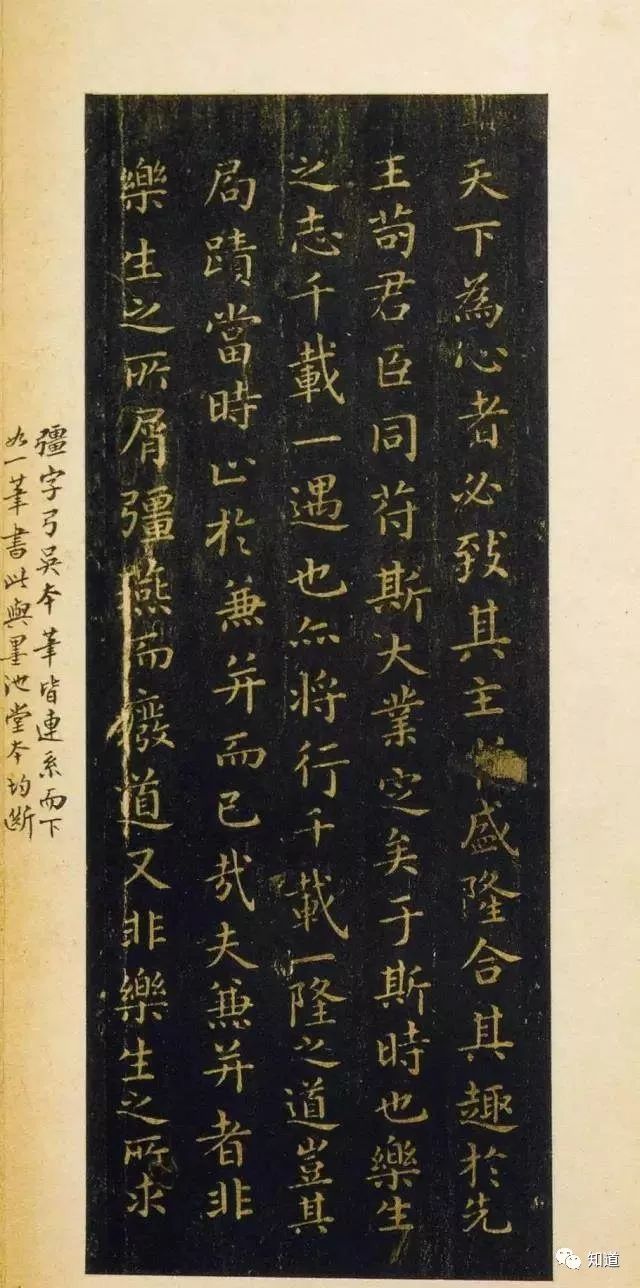 天下為心者必致其主盛隆合其趣於先
王苟君臣同苻斯大業定矣于斯時也樂生
之志千載一遇也亦将行千載一隆之道豈其
局蹟當時止於兼并而已哉夫兼并者非
樂生之所屑彊燕而癈道又非樂生之所求
彊字弓吳本筆皆連系而下
如一筆書此與墨池堂本均斷
知道